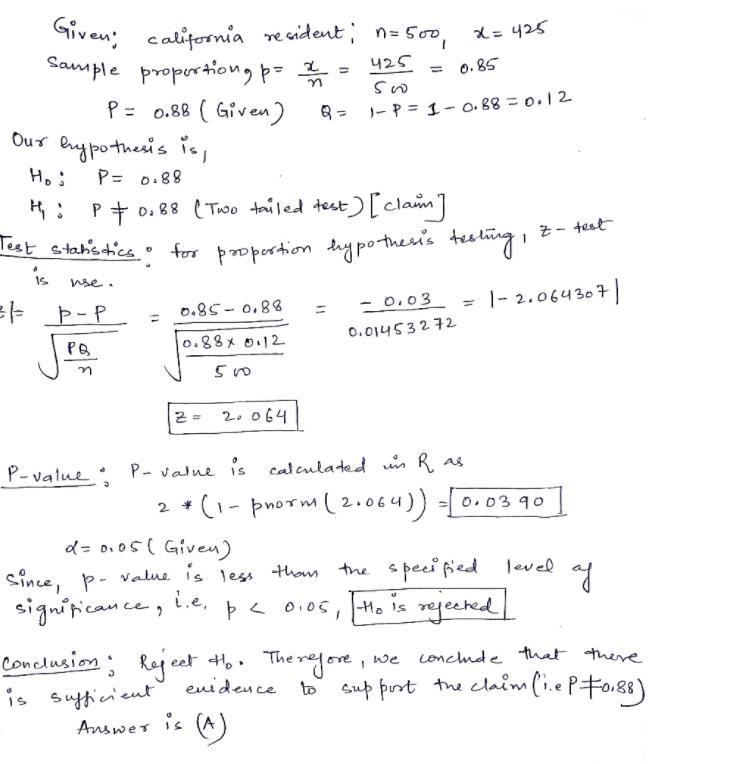 Given: california resident; n=500, x=425
Sample proportion, p= x/n = 425/500 = 0.85
P= 0.88 (Given) Q= 1-P = 1-0.88 = 0.12
Our hypothesis is,
H₀: P= 0.88
H₁: P ≠ 0.88 (Two tailed test) [claim]
Test statistics: for proportion hypothesis testing, z-test
is use.
z|= p-P / √(PQ/n) = 0.85-0.88 / √(0.88x0.12/500) = -0.03 / 0.01453272 = |-2.064307|
Z= 2.064
P-value: P-value is calculated in R as
2*(1-pnorm(2.064)) = 0.0390
α=0.05 (Given)
Since, p-value is less than the specified level of
significance, i.e. p < 0.05, H₀ is rejected
Conclusion: Reject H₀. Therefore, we conclude that there
is sufficient evidence to support the claim (i.e P≠0.88)
Answer is (A)